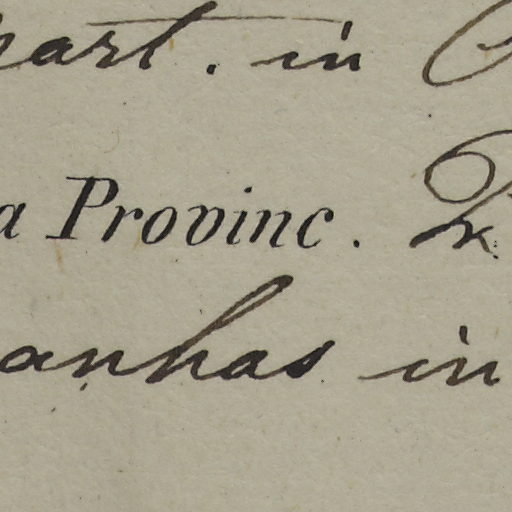 part. in
a Provinc.
anhas in